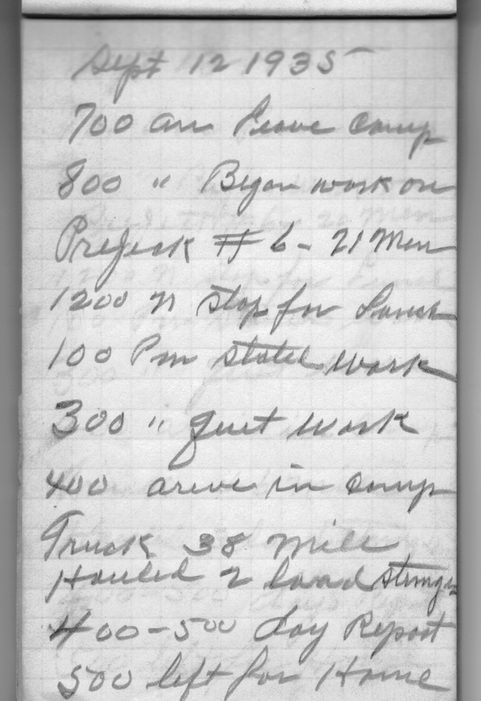 Sept 12 1935
700 am Leave Camp
800 " Began work on
Projeck # 6 - 21 Men
1200 N Stop for Lunch
100 Pm stated work
300 " quit work
400 arive in Camp
Truck 38 Mile
Hauled 2 load
400-500 day Report
500 left for Home